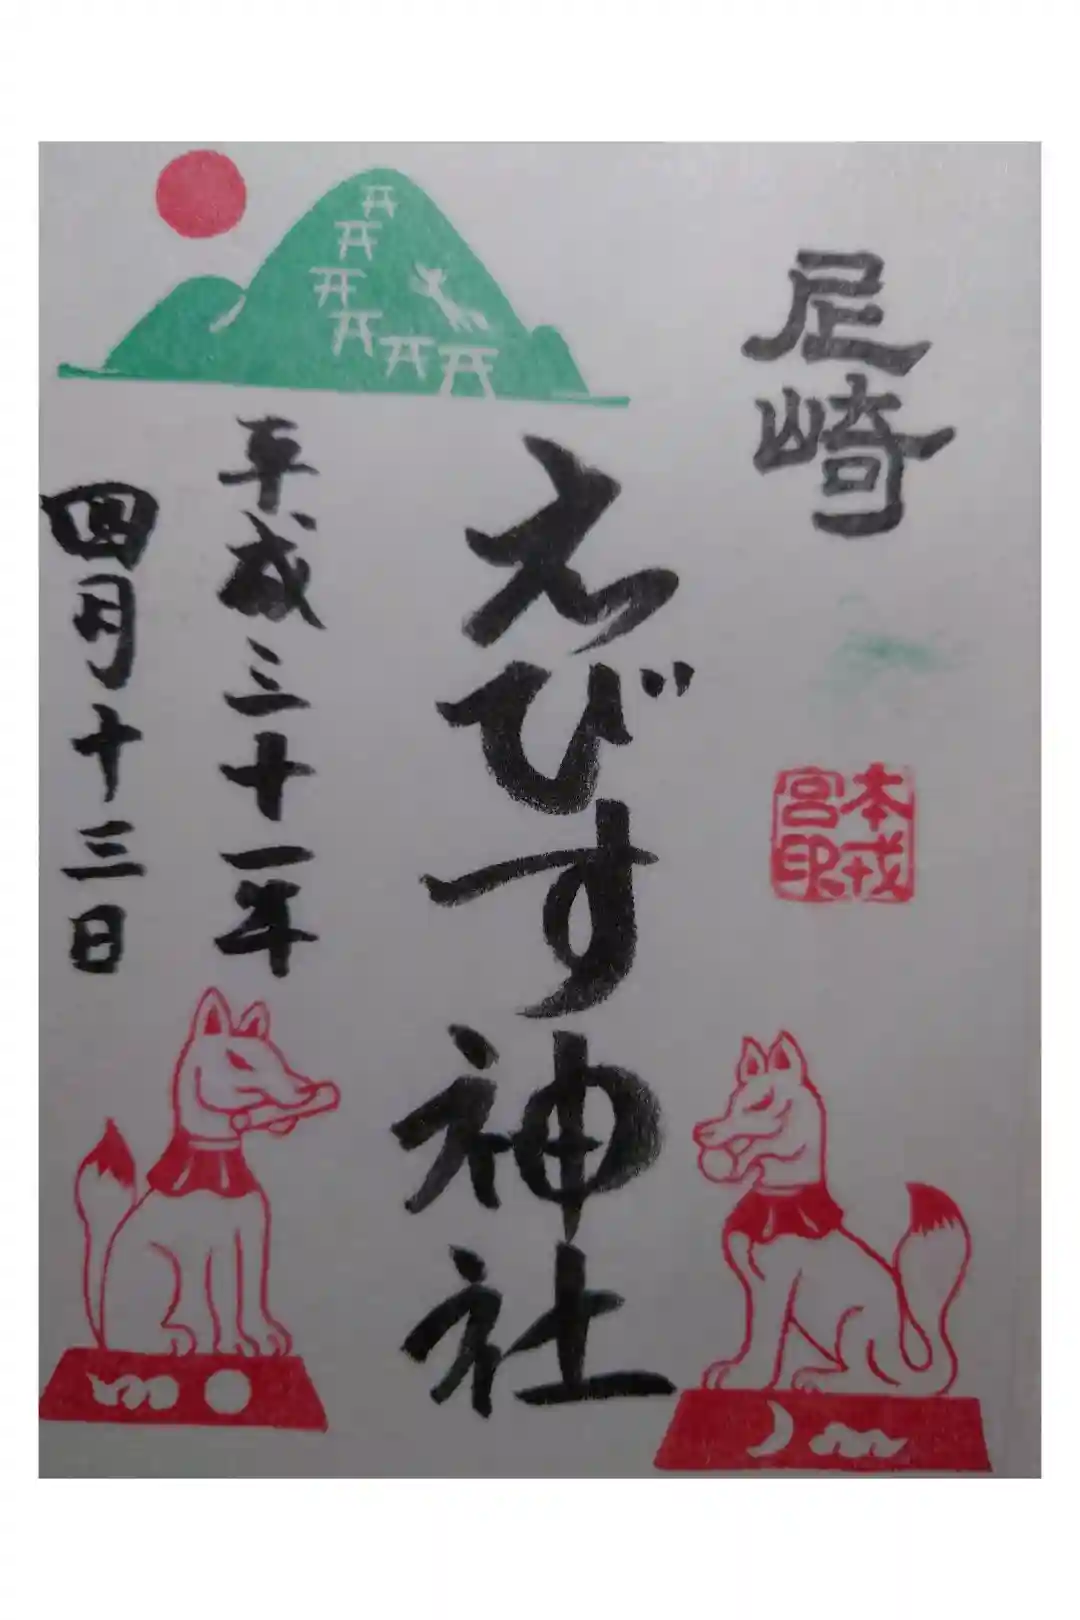 尼崎
本戎
宮印
えびす神社
平成三十一年
四月十三日